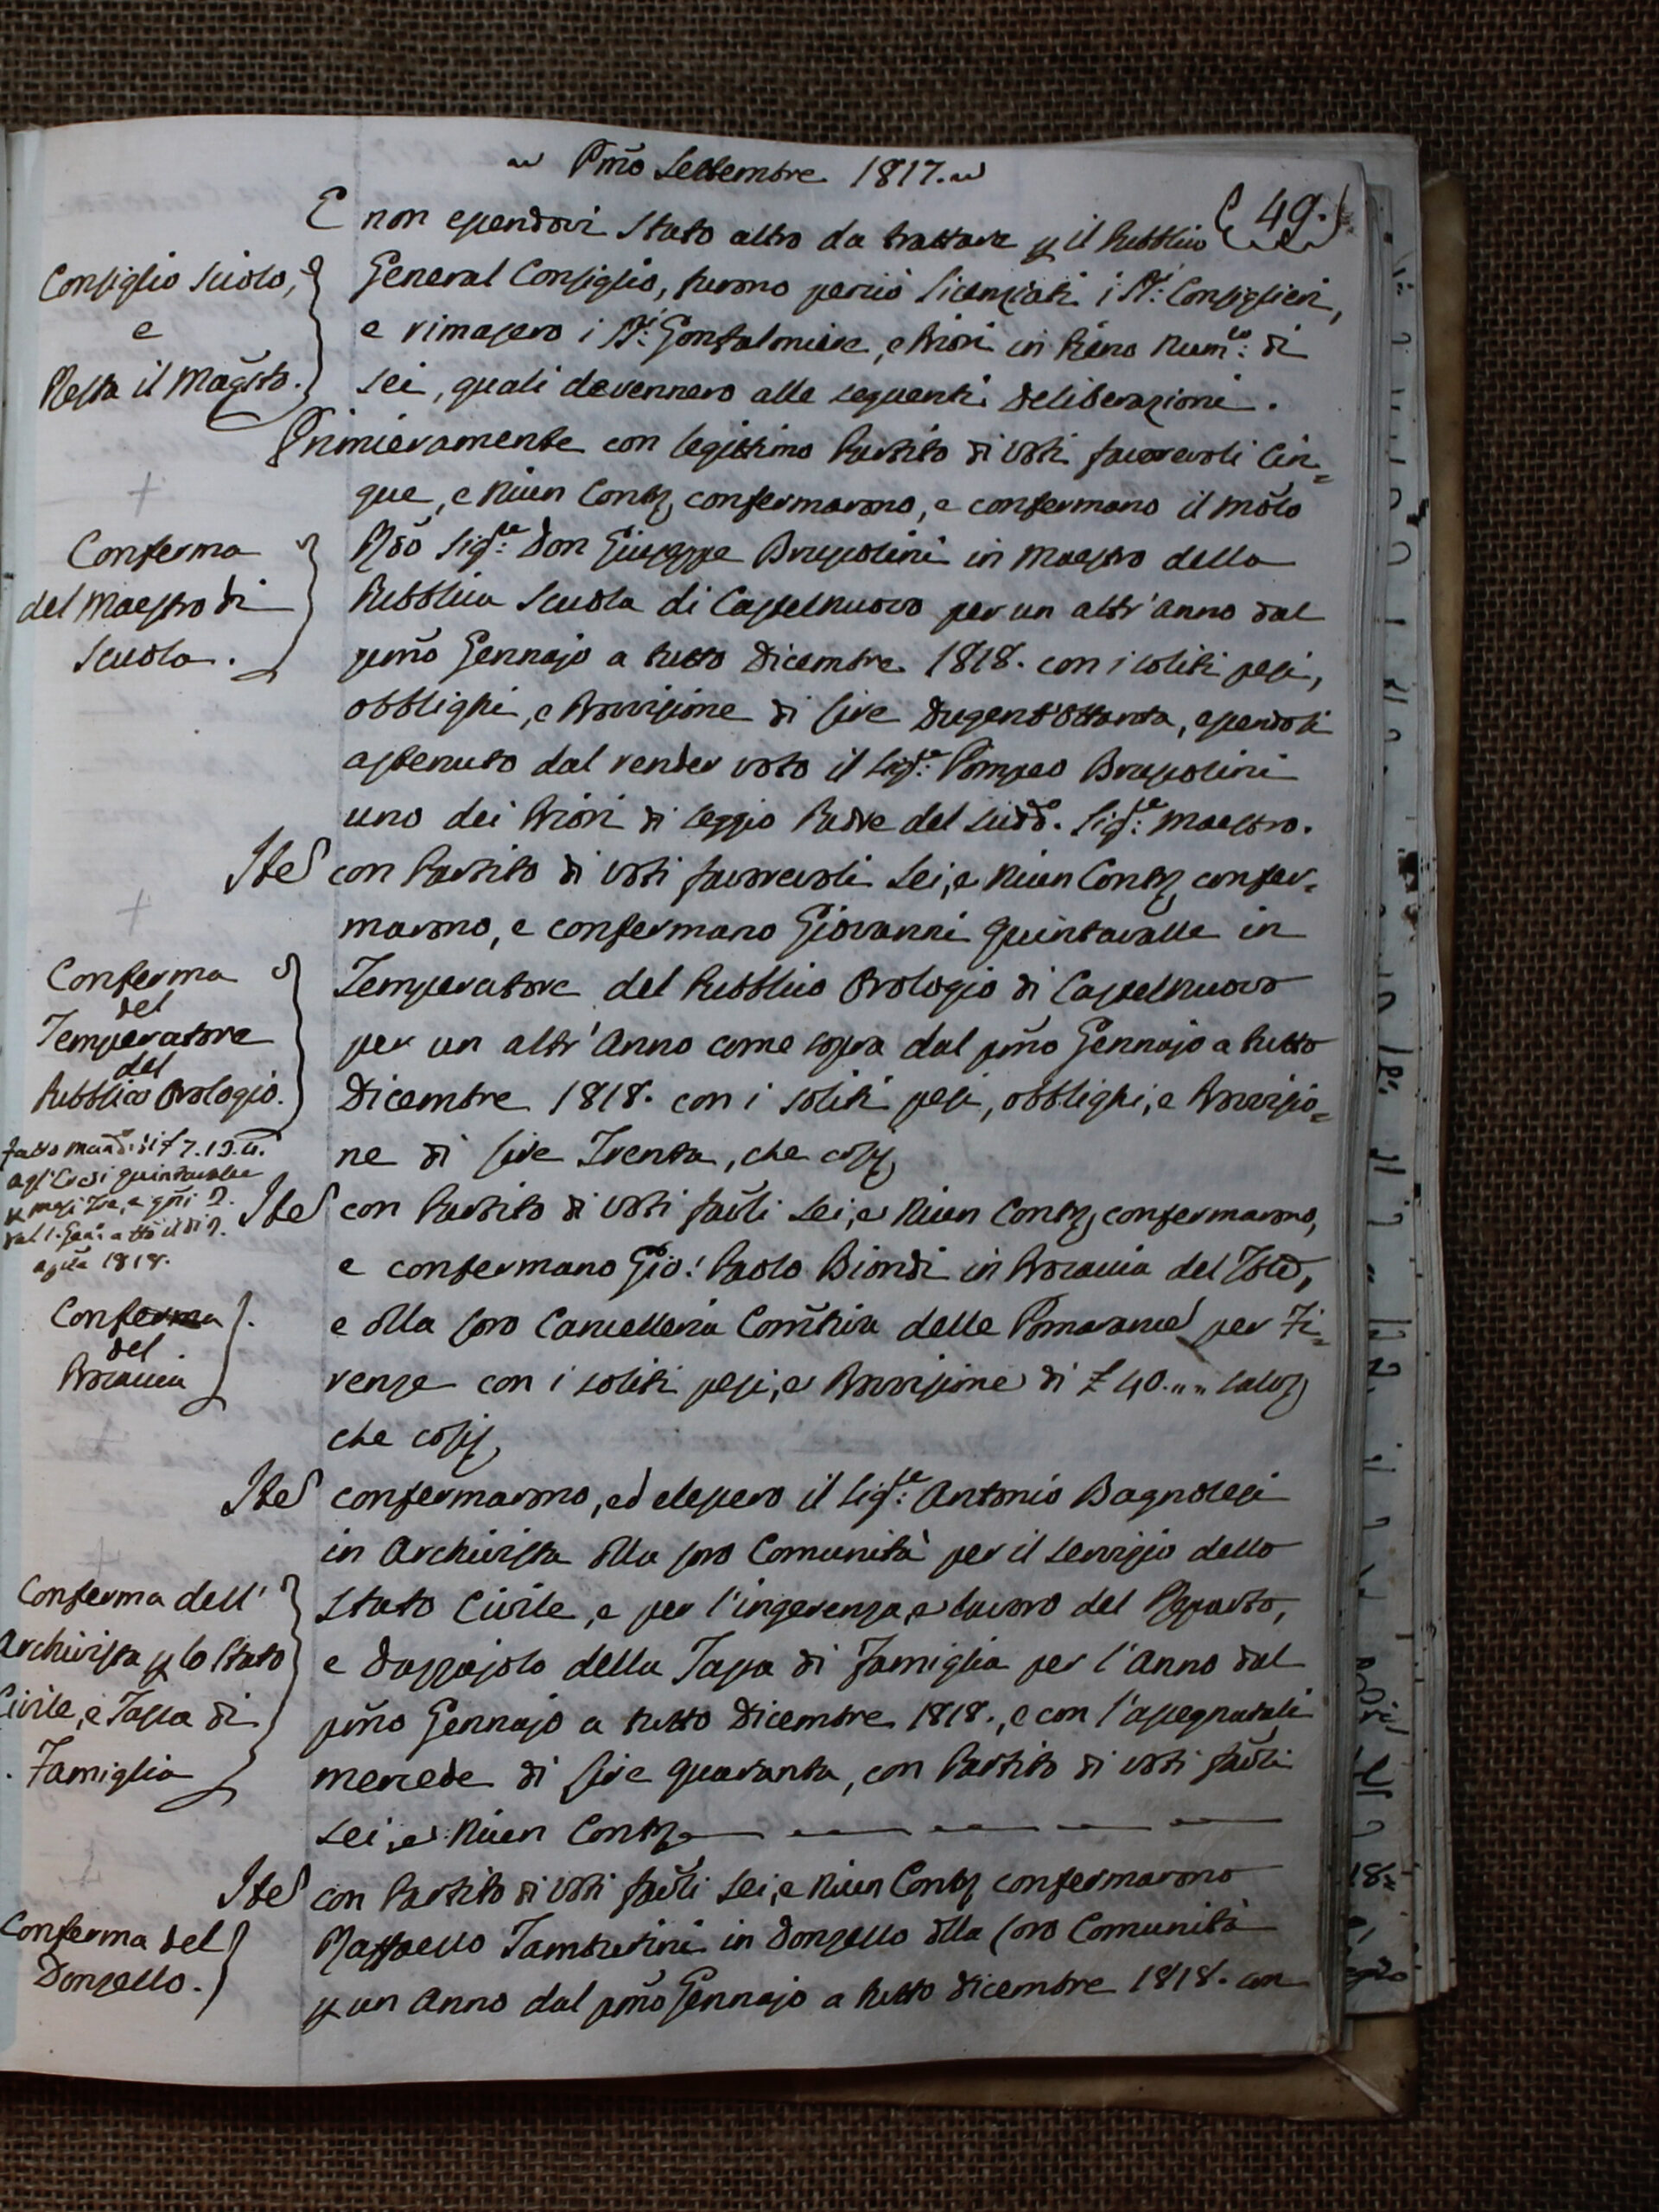 Pmo Settembre 1817.
49.
E non essendovi stato altro da trattare p il Pubblico
General Consiglio, furono perciò licenziati i SS.ri Consiglieri,
e rimasero i SS.ri Gonfaloniere, e Priori in Pieno Num.ro di
sei, quali devennero alle seguenti deliberazioni.
Consiglio sciolto,
e
Resta il Magsto.
Primieramente con legittimo Partito di Voti favorevoli Cin=
que, e Niun Contr confermarono, e confermano il Molo
Rdo Sig.re Don Giuseppe Bruscolini in Maestro della
Pubblica Scuola di Castelnuovo per un altr'anno dal
pmo Gennajo a tutto Dicembre 1818. con i soliti pesi,
obblighi, e Provvisione di Lire Dugent'Ottanta, essendosi
astenuto dal render voto il Sig.re Pompeo Bruscolini
uno dei Priori di seggio Padre del sudd.o Sig.re Maestro.
Conferma
del Maestro di
Scuola.
Ite con Partito di Voti favorevoli Sei, e Niun Contr confer=
marono, e confermano Giovanni Quintavalle in
Temperatore del Pubblico Orologio di Castelnuovo
per un altr'Anno come sopra dal pmo Gennajo a tutto
Dicembre 1818. con i soliti pesi, obblighi, e Provvisio=
ne di Lire Trenta, che così
Conferma
del
Temperatore
del
Pubblico Orologio.
fatto mand.o di £ 7.19.4.
agl'Eredi Quintavalle
p mesi Tre, e gni 2.
dal 1. Gen.o a tto il dì 2.
aple 1818.
Ite con Partito di Voti favli Sei, e Niun Contr confermarono,
e confermano Gio: Paolo Biondi in Procaccia del
e dlla loro Cancelleria Comtiva delle Pomarance per Fi=
renze con i soliti pesi, e Provvisione di £ 40.,, ,,
che così
Conferma
del
Procaccia
Ite confermarono, ed elessero il Sig.re Antonio Bagnolesi
in Archivista dlla loro Comunità per il servizio dello
Stato Civile, e per l'ingerenza, e lavoro del Reparto,
e Dazzajolo della Tassa di Famiglia per l'Anno dal
pmo Gennajo a tutto Dicembre 1818., e con l'assegnatali
mercede di Lire Quaranta, con Partito di Voti favli
Sei, e Niun Contr
Conferma dell'
Archivista p lo Stato
Civile, e Tassa di
Famiglia
Ite con Partito di Voti favli Sei, e Niun Contr confermarono
Raffaello Tamburini in Donzello dlla loro Comunità
p un Anno dal pmo Gennajo a tutto Dicembre 1818. con
Conferma del
Donzello.